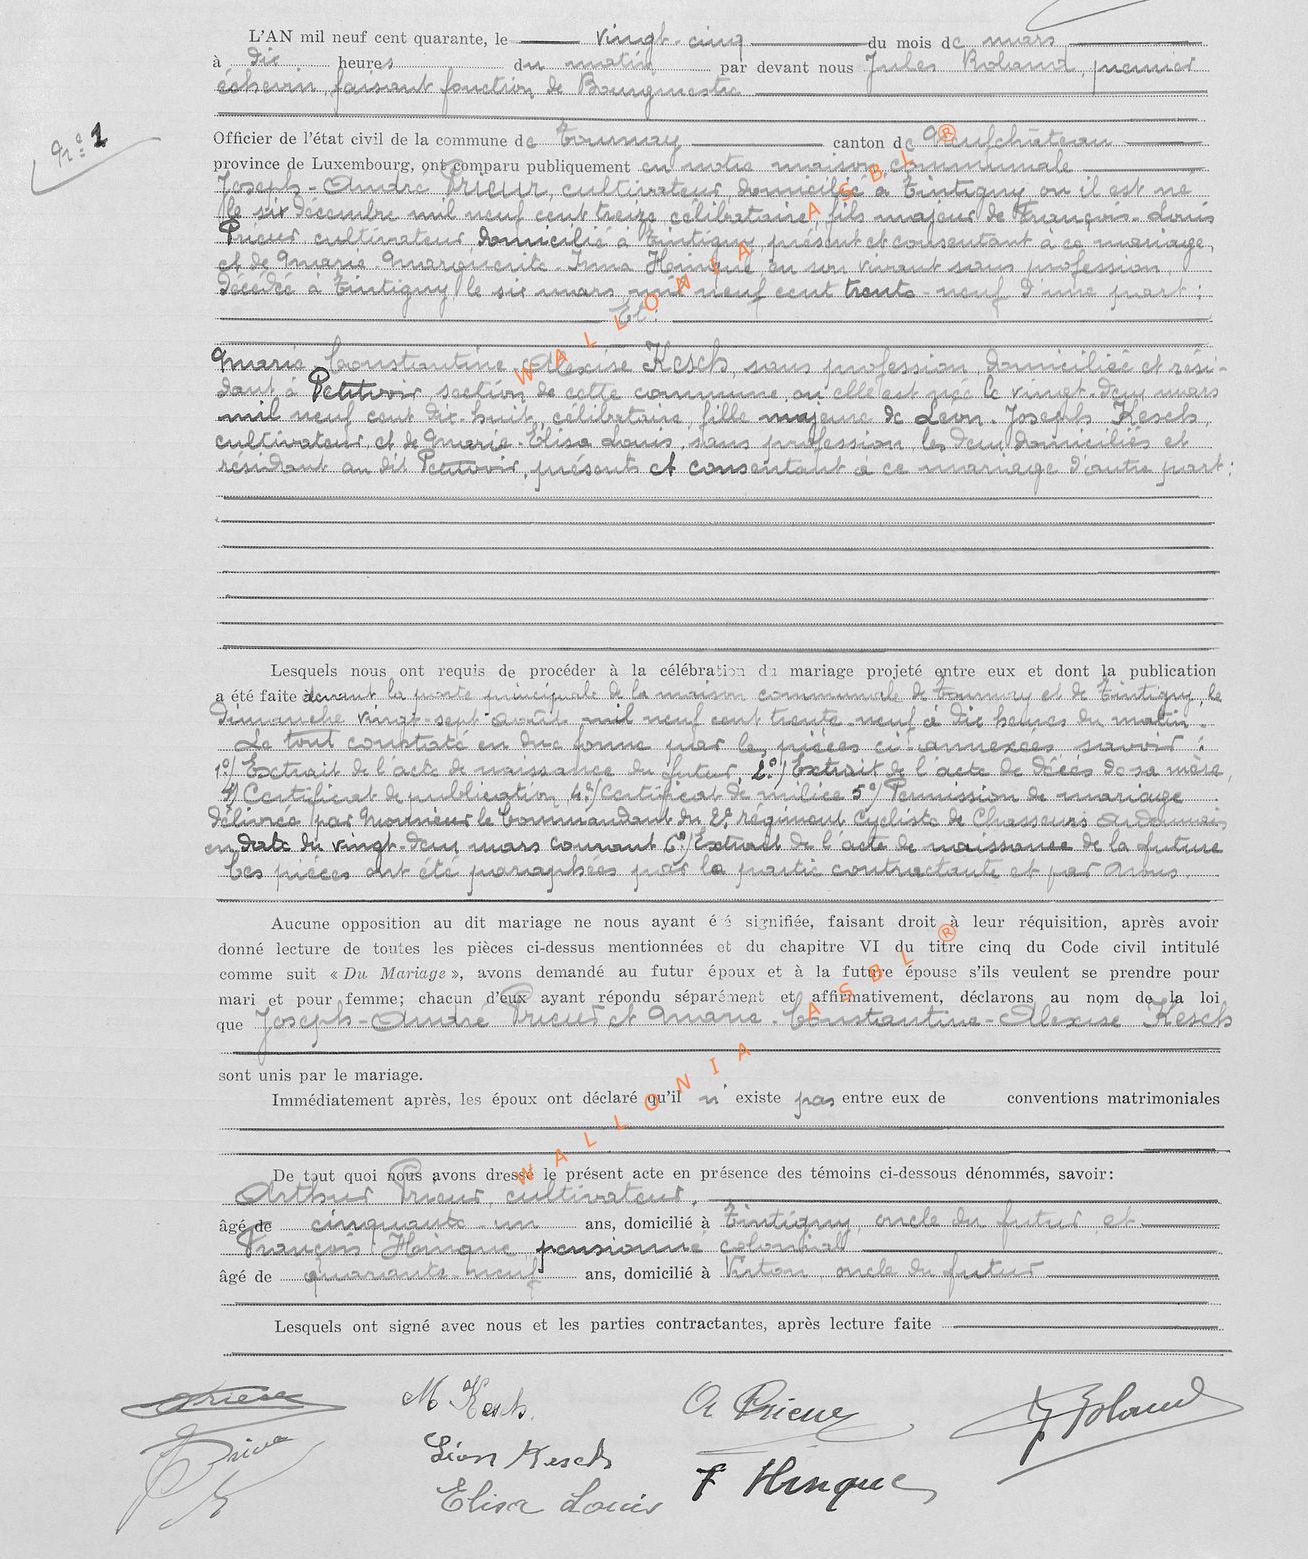 L'AN mil neuf cent quarante, le vingt-cinq du mois de mars
à dix heures du matin par devant nous Jules Roland, premier
échevin, faisant fonction de Bourgmestre
N° 1
Officier de l'état civil de la commune de Tournay canton de Neufchâteau
province de Luxembourg, ont comparu publiquement en notre maison communale
Joseph-André Prieur, cultivateur, domicilié à Tintigny où il est né
le six décembre mil neuf cent treize, célibataire, fils majeur de François-Louis
Prieur cultivateur, domicilié à Tintigny présent et consentant à ce mariage,
et de Marie Marguerite-Irma Hinque, en son vivant sans profession,
décédée à Tintigny le six mars mil neuf cent trente-neuf d'une part;
Et:
Marie Constantine Alexise Kesch, sans profession, domiciliée et rési-
dant à Petitvoir, section de cette commune, où elle est née le vingt-deux mars
mil neuf cent dix-huit, célibataire, fille majeure de Léon-Joseph Kesch,
cultivateur et de Marie-Elisa Louis, sans profession, les deux domiciliés et
résidant au dit Petitvoir, présents et consentant à ce mariage d'autre part;
Lesquels nous ont requis de procéder à la célébration du mariage projeté entre eux et dont la publication
a été faite devant la porte principale de la maison communale de Tournay et de Tintigny, le
dimanche vingt-sept août mil neuf cent trente-neuf à dix heures du matin.
Le tout constaté en due forme par les pièces ci-annexées savoir:
1°/ Extrait de l'acte de naissance du futur, 2°/ Extrait de l'acte de décès de sa mère,
3°/ Certificat de publication, 4°/ Certificat de milice 5°/ Permission de mariage
délivrée par Monsieur le Commandant du 2e régiment Cycliste de Chasseurs Ardennais
en date du vingt-deux mars courant 6°/ Extrait de l'acte de naissance de la future
Ces pièces ont été paraphées par la partie contractante et par nous.
Aucune opposition au dit mariage ne nous ayant été signifiée, faisant droit à leur réquisition, après avoir
donné lecture de toutes les pièces ci-dessus mentionnées et du chapitre VI du titre cinq du Code civil intitulé
comme suit « Du Mariage », avons demandé au futur époux et à la future épouse s'ils veulent se prendre pour
mari et pour femme; chacun d'eux ayant répondu séparément et affirmativement, déclarons au nom de la loi
que Joseph-André Prieur et Marie-Constantine-Alexise Kesch
sont unis par le mariage.
Immédiatement après, les époux ont déclaré qu'il n'existe pas entre eux de conventions matrimoniales
De tout quoi nous avons dressé le présent acte en présence des témoins ci-dessous dénommés, savoir:
Arthur Prieur, cultivateur,
âgé de cinquante-un ans, domicilié à Tintigny, oncle du futur et
François Hinque pensionné colonial
âgé de quarante-neuf ans, domicilié à Virton, oncle du futur
Lesquels ont signé avec nous et les parties contractantes, après lecture faite
Prieur M Kesch. A Prieur J Roland
Prieur Léon Kesch F Hinque
Elisa Louis
WALLONIA ASBL ®
WALLONIA ASBL ®